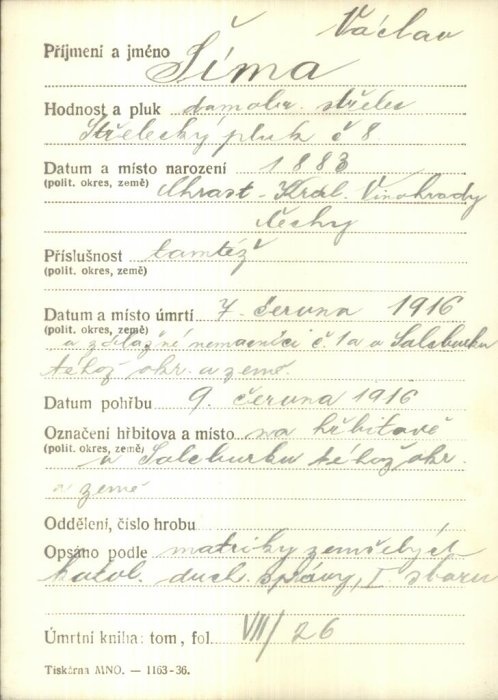 Václav
Příjmení a jméno Šíma
Hodnost a pluk domobr. střelec
Střelecký pluk č 8.
Datum a místo narození 1883
(polit. okres, země) Chrast - Král. Vinohrady
Čechy
Příslušnost tamtéž
(polit. okres, země)
Datum a místo úmrtí 7. června 1916
(polit. okres, země)
v záložné nemocnici č. 1a v Salcburku
téhož okr. a země.
Datum pohřbu 9. června 1916
Označení hřbitova a místo na hřbitově
(polit. okres, země) v Salcburku téhož okr.
a země
Oddělení, číslo hrobu
Opsáno podle matriky zemřelých
katol. duch. správy, I. sboru
Úmrtní kniha: tom, fol. VII/26
Tiskárna MNO. — 1163-36.